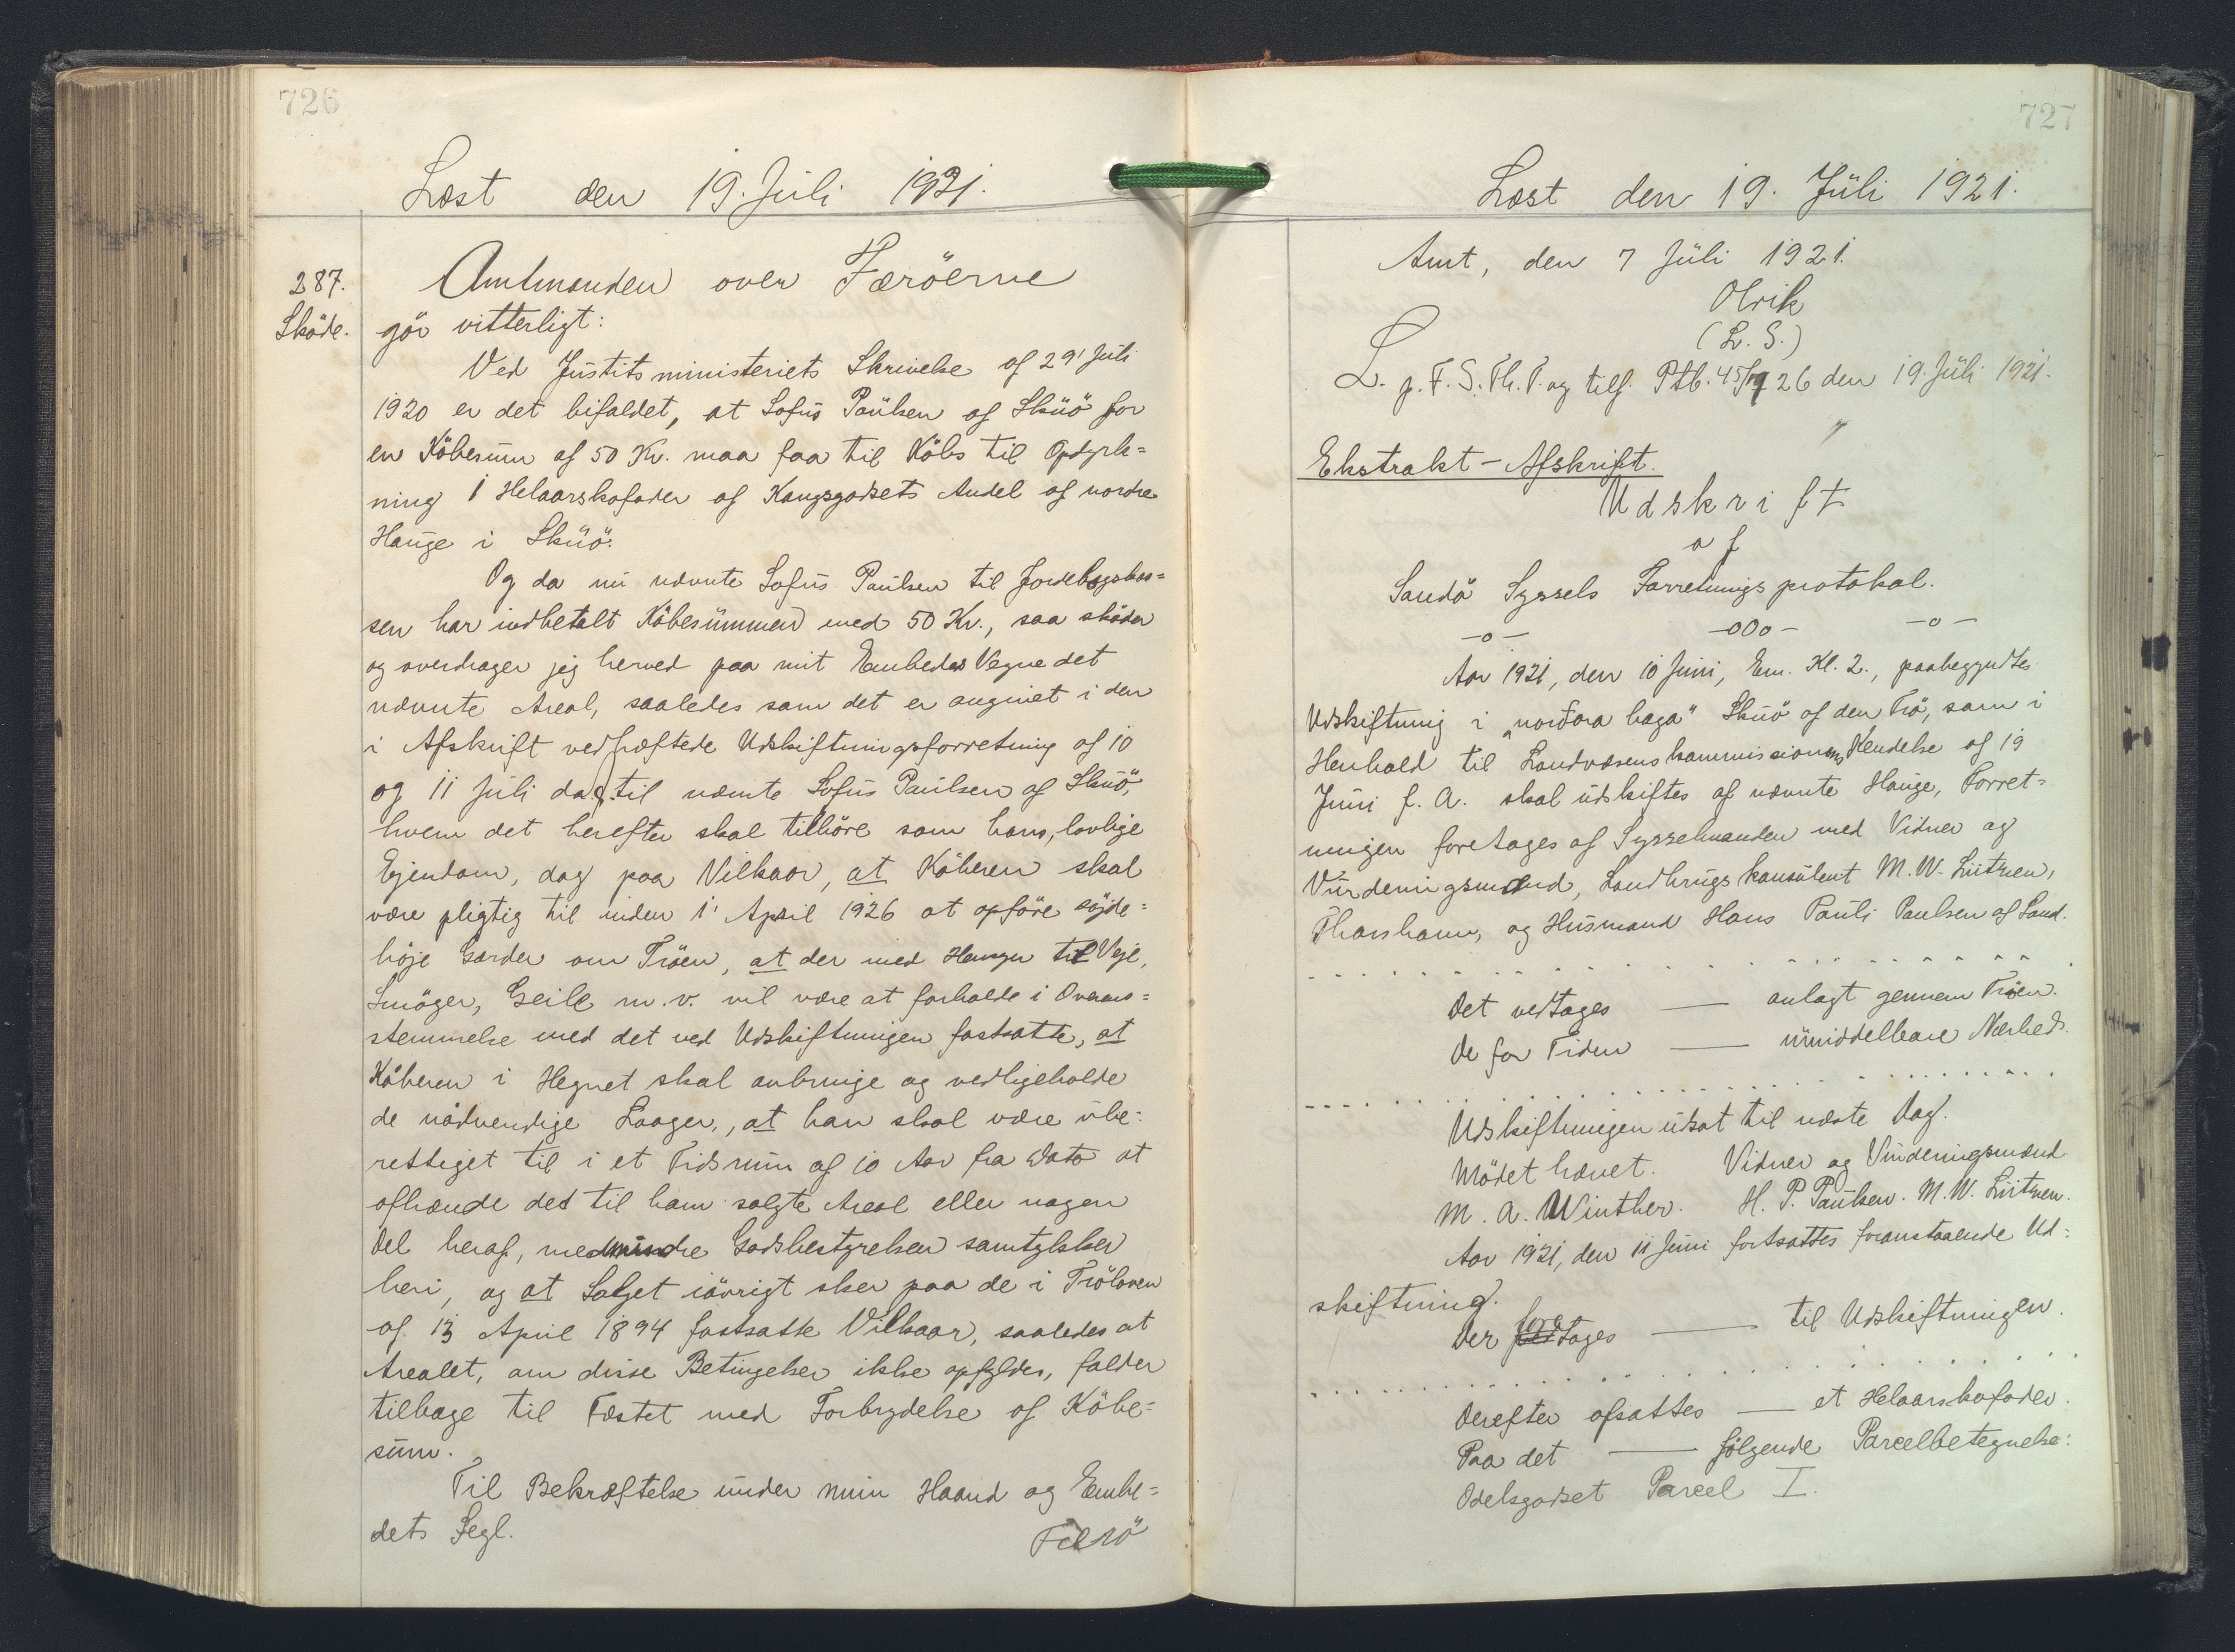 726
Læst den 19. Juli 1921.
287.
Sköde.
Amtmanden over Færöerne
gör vitterligt:
Ved Justitsministeriets Skrivelse af 29' Juli
1920 er det bifaldet, at Sofus Poulsen af Skuö for
en Köbesum af 50 Kr. maa faa til Köbs til Opdyrk=
ning 1 Helaarskofoder af Kongsgodsets Andel af nordre
Hauge i Skuö.
Og da nu nævnte Sofus Paulsen til Jordebogskas=
sen har indbetalt Köbesummen med 50 Kr., saa sköder
og overdrager jeg herved paa mit Embedes Vegne det
nævnte Areal, saaledes som det er angivet i den
i Afskrift vedhæftede Udskiftningsforretning af 10
og 11 Juli da. til nævnte Sofus Paulsen af Skuö,
hvem det herefter skal tilhöre som hans, lovlige
Ejendom, dog paa Vilkaar, at Köberen skal
være pligtig til inden 1' April 1926 at opföre söjde=
höje Gærder om Tröen, at der med Hensyn til Veje,
Smöger, Geile m. v. vil være at forholde i Overens=
stemmelse med det ved Udskiftningen fastsatte, at
Köberen i Hegnet skal anbringe og vedligeholde
de nödvendige Laager, at han skal være ube=
rettiget til i et Tidsrum af 10 Aar fra Dato at
afhænde det til ham solgte Areal eller nogen
Del heraf, medmindre Godsbestyrelsen samtykker
heri, og at Salget iövrigt sker paa de i Tröloven
af 13 April 1894 fastsatte Vilkaar, saaledes at
Arealet, om disse Betingelser ikke opfyldes, falder
tilbage til Fæstet med Forbrydelse af Köbe=
sum.
Til Bekræftelse under min Haand og Embe=
dets Segl.
Færö
727
Læst den 19. Juli 1921.
Amt, den 7 Juli 1921.
Olrik
(L. S.)
L. p. F. S. Th. T. og tilf. Ptb. 45/1926 den 19. Juli 1921.
Ekstrakt-Afskrift.
Udskrift
af
Sandö Syssels Forretningsprotokol.
-o- -oOo- -o-
Aar 1921, den 10 Juni, Em. Kl. 2., paabegyndtes
Udskiftning i "norðara haga" Skuö af den Trö, som i
Henhold til Landvæsenskommissionens Kendelse af 19
Juni f. A. skal udskiftes af nævnte Hauge, Forret=
ningen foretages af Sysselmanden med Vidner og
Vurderingsmænd, Landbrugskonsulent M. W. Lützen,
Thorshavn, og Husmand Hans Pauli Paulsen af Sand.
Det vedtages — anlagt gennem Tröen.
De for Tiden — umiddelbare Nærhed.
Udskiftningen udsat til næste Dag.
Mödet hævet. Vidner og Vurderingsmænd
M. A. Winther. H. P. Paulsen. M. W. Lützen.
Aar 1921, den 11 Juni fortsattes foranstaaende Ud=
skiftning.
Der foretages — til Udskiftningen.
Derefter afsattes — et Helaarskofoder.
Paa det — fölgende Parcelbetegnelse:
Odelsgodset Parcel I.